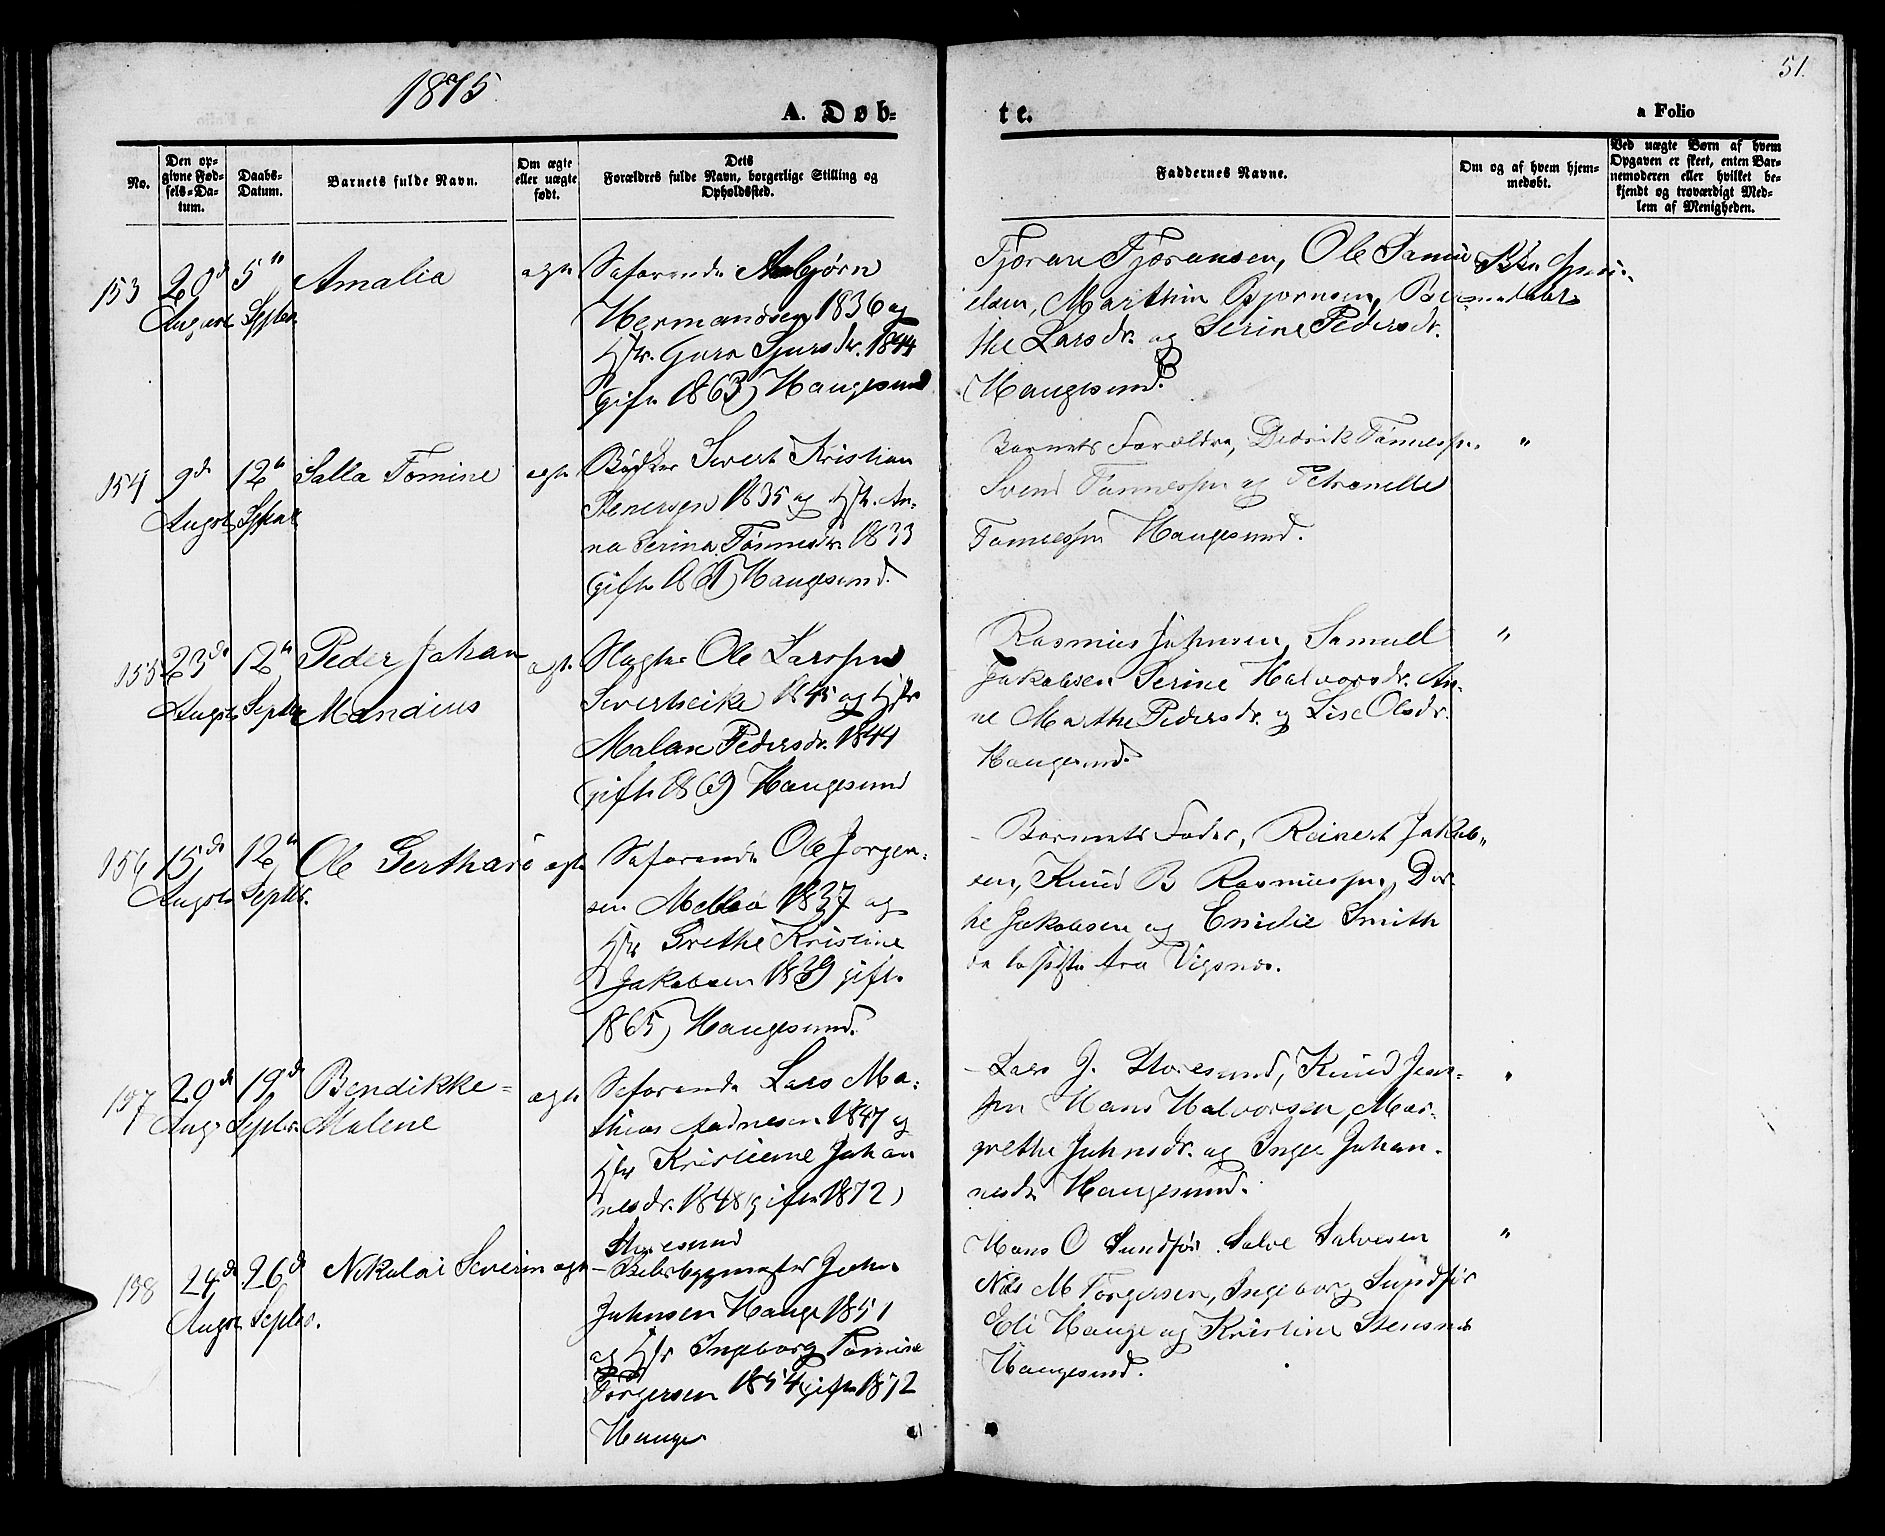 1875
51.
A. Døb-
te.
a Folio
No.
Den op-
givne Fød-
sels-Da-
tum.
Daabs-
Datum.
Barnets fulde Navn.
Om ægte
eller uægte
født.
Dets
Forældres fulde Navn, borgerlige Stilling og
Opholdssted.
Faddernes Navne.
Om og af hvem hjem-
medøbt.
Ved uægte Børn af hvem
Opgaven er skeet, enten Bar-
nemoderen eller hvilket be-
kjendt og troværdigt Med-
lem af Menigheden.
153
20de
August
5te
Septbr.
Amalia
ægte
Søfarende Asbjørn
Hermansen 1836 og
Hstr. Guro Sjursdr. 1844
gift 1863) Haugesund
Tjøran Tjøransen, Ole Samu
elsen, Marthin Bjørnsen, Ber-
the Larsdr. og Serine Pedersdr.
Haugesund.
154
9de
August
12te
Septbr
Salla Tomine
ægte
Bødker Sivert Kristian
Stenersen 1835 og Hstr. An-
na Serina Tønnesdr 1833
gift Haugesund.
Barnets Forældre, Didrik Tønnessen,
Svend Tønnessen og Petronelle
Tønnessen Haugesund.
"
155
23de
August
12te
Septbr
Peder Johan
Mandius
ægte
Slagter Ole Larssen
Sivertseike 1845 og Hstr
Malene Pedersdr. 1844
gift 1869) Haugesund
Rasmus Johnsen, Samuel
Jakobsen Serine Halvorsdr. An-
ne Marthe Pedersdr. og Lise Olsdr.
Haugesund.
"
156
15de
August
12te
Septbr.
Ole Gerthard
ægte
Søfarende Ole Jørgen-
sen 1837 og
Hstr Grethe Kristine
Jakobsen 1839 gift
1865) Haugesund.
Barnets Fader, Reinert Jakob-
sen, Knud B Rasmussen, Dor-
the Jakobsen og Emilie Smith
de to sidste fra Vigsnæs.
"
157
20de
Aug.
19de
Septbr.
Bendikke
Malene
ægte
Søfarende Lars Ma-
thias Aadnesen 1847 og
Hstr Kristine Johan
nesdr. 1848 gift 1872)
Storesund
Lars J. Storesund, Knud Jens-
sen Hans Halvorsen, Mar-
grethe Johnsdr. og Inger Johan-
nesdr Haugesund.
"
158
24de
August
26de
Septbr.
Nikolai Severin
ægte
Baadbyggmester John
Johnsen Hauge 1851
og Hstr Ingeborg Tomine
Torgersen 1854 gift 1872
Hauge
Hans O Sundfør. Salve Salvesen
Nils M Torgersen, Ingeborg Sundfør
Eli Hauge og Kristine Stensnes
Haugesund.
"